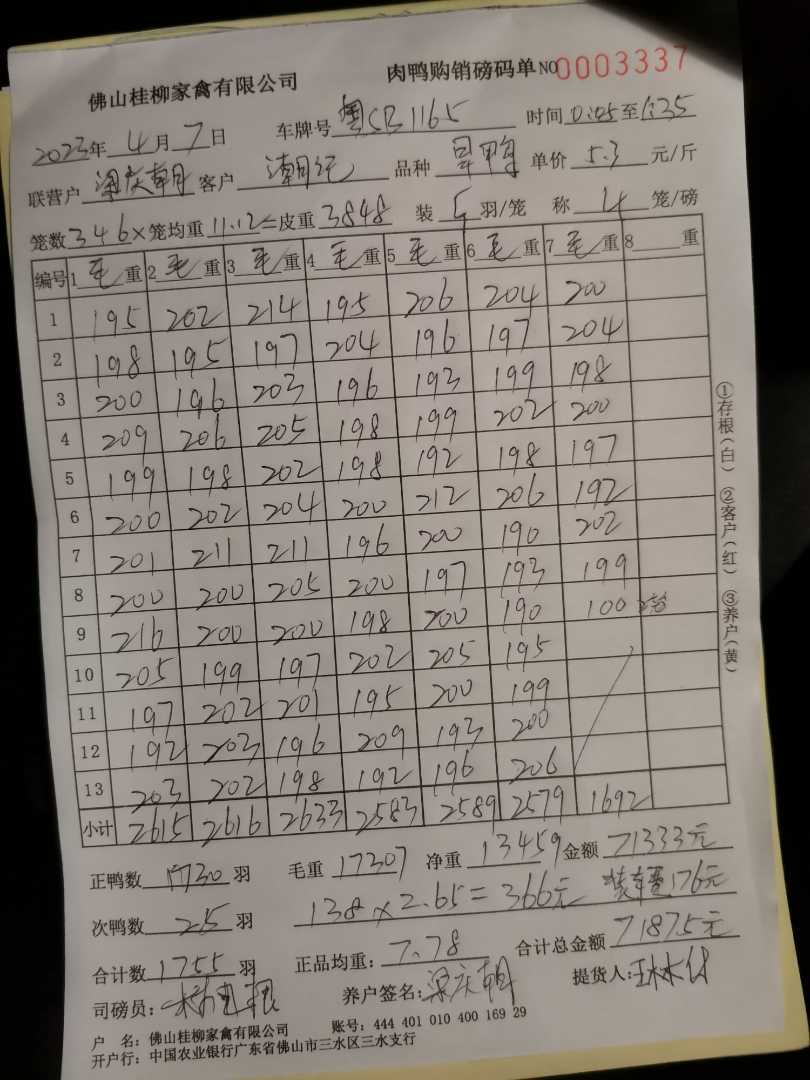 佛山桂柳家禽有限公司 肉鸭购销磅码单 NO0003337
2023年4月7日 车牌号 粤SB1165 时间 0:05至1:35
联营户 梁庆朝 客户 品种 单价 5.3 元/斤
笼数346×笼均重11.12=皮重3848 装5羽/笼 称4笼/磅
编号 1毛重 2毛重 3毛重 4毛重 5毛重 6毛重 7毛重 8重
1 195 202 214 195 206 204 200
2 198 195 197 204 196 197 204
3 200 196 203 196 193 199 198
4 209 206 205 198 199 202 200
5 199 198 202 198 192 198 197
6 200 202 204 200 212 206 192
7 201 211 211 196 200 190 202
8 200 200 205 200 197 193 199
9 216 200 200 198 200 190 100
10 205 199 197 202 205 195
11 197 202 201 195 200 199
12 192 203 196 209 193 200
13 203 202 198 192 196 206
小计 2615 2616 2633 2583 2589 2579 1692
正鸭数 1730 羽 毛重 17307 净重 13459 金额 71333元
次鸭数 25 羽 138×2.65=366元 装车费176元
合计数 1755 羽 正品均重: 7.78 合计总金额 71875元
司磅员: 养户签名: 梁庆朝 提货人:
户 名: 佛山桂柳家禽有限公司 账号: 444 401 010 400 169 29
开户行: 中国农业银行广东省佛山市三水区三水支行
①存根(白) ②客户(红) ③养户(黄)